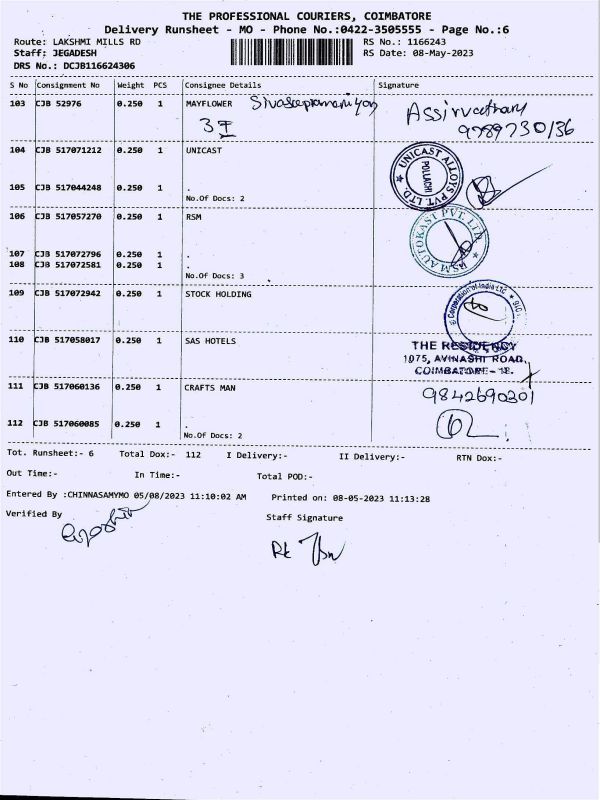 THE PROFESSIONAL COURIERS, COIMBATORE
Delivery Runsheet - MO - Phone No.:0422-3505555 - Page No.:6
Route: LAKSHMI MILLS RD RS No.: 1166243
Staff: JEGADESH RS Date: 08-May-2023
DRS No.: DCJB116624306
S No Consignment No Weight PCS Consignee Details Signature
103 CJB 52976 0.250 1 MAYFLOWER
104 CJB 517071212 0.250 1 UNICAST
UNICAST ALLOYS PVT. LTD.
POLLACHI
105 CJB 517044248 0.250 1 .
No.Of Docs: 2
106 CJB 517057270 0.250 1 RSM
RSM AUTOKAST PVT. LTD
107 CJB 517072796 0.250 1 .
108 CJB 517072581 0.250 1
No.Of Docs: 3
109 CJB 517072942 0.250 1 STOCK HOLDING
Corporation of India LTD
110 CJB 517058017 0.250 1 SAS HOTELS
THE RESIDENCY
1075, AVINASHI ROAD,
COIMBATORE - 18.
111 CJB 517060136 0.250 1 CRAFTS MAN
9842690301
112 CJB 517060085 0.250 1 .
No.Of Docs: 2
Tot. Runsheet:- 6 Total Dox:- 112 I Delivery:- II Delivery:- RTN Dox:-
Out Time:- In Time:- Total POD:-
Entered By :CHINNASAMYMO 05/08/2023 11:10:02 AM Printed on: 08-05-2023 11:13:28
Verified By Staff Signature